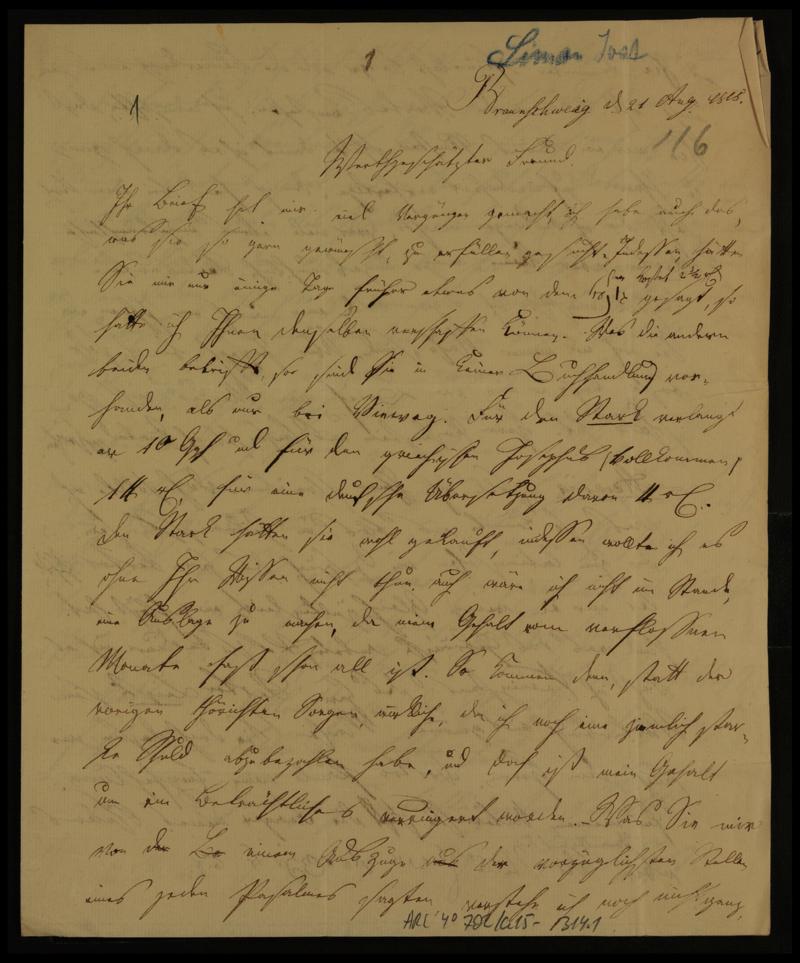 1
Simon Jost
1
Braunschweig d 21 Aug. 1815.
116
Werthgeschätzter Freund.
Ihr Brief hat mir viel Vergnügen gemacht, ich habe auch das,
was Sie so gern gewünscht, zu erfüllen gesucht. Indessen hätten
Sie mir nur einige Tage früher etwas von dem gesagt, so
hätte ich Ihnen denselben verschaffen können. Was die andern
beiden betrifft, so sind Sie in keiner Buchhandlung vor-
handen, als nur bei Vieweg. Für den Stark verlangt
er 10 Ggl und für den griechischen Josephus (vollkommen)
für eine deutsche Übersetzung davon
den Stark hätten sie wohl gekauft, indessen wollte ich es
ohne Ihr Wissen nicht thun, auch wäre ich nicht im Stande,
eine Auslage zu machen, da mein Gehalt vom verflossnen
Monate fast schon all ist. So kommen denn, statt der
vorigen thörichten Sorgen, wirkliche, da ich noch eine ziemlich star-
ke Schuld abzubezahlen habe, und doch ist mein Gehalt
um ein Beträchtliches verringert worden. Was Sie mir
von der einem Auszuge aus der vorzüglichsten Stellen
eines jeden Psalmes sagten verstehe ich noch nicht ganz,
ARC 4° 792/C15-B14.1